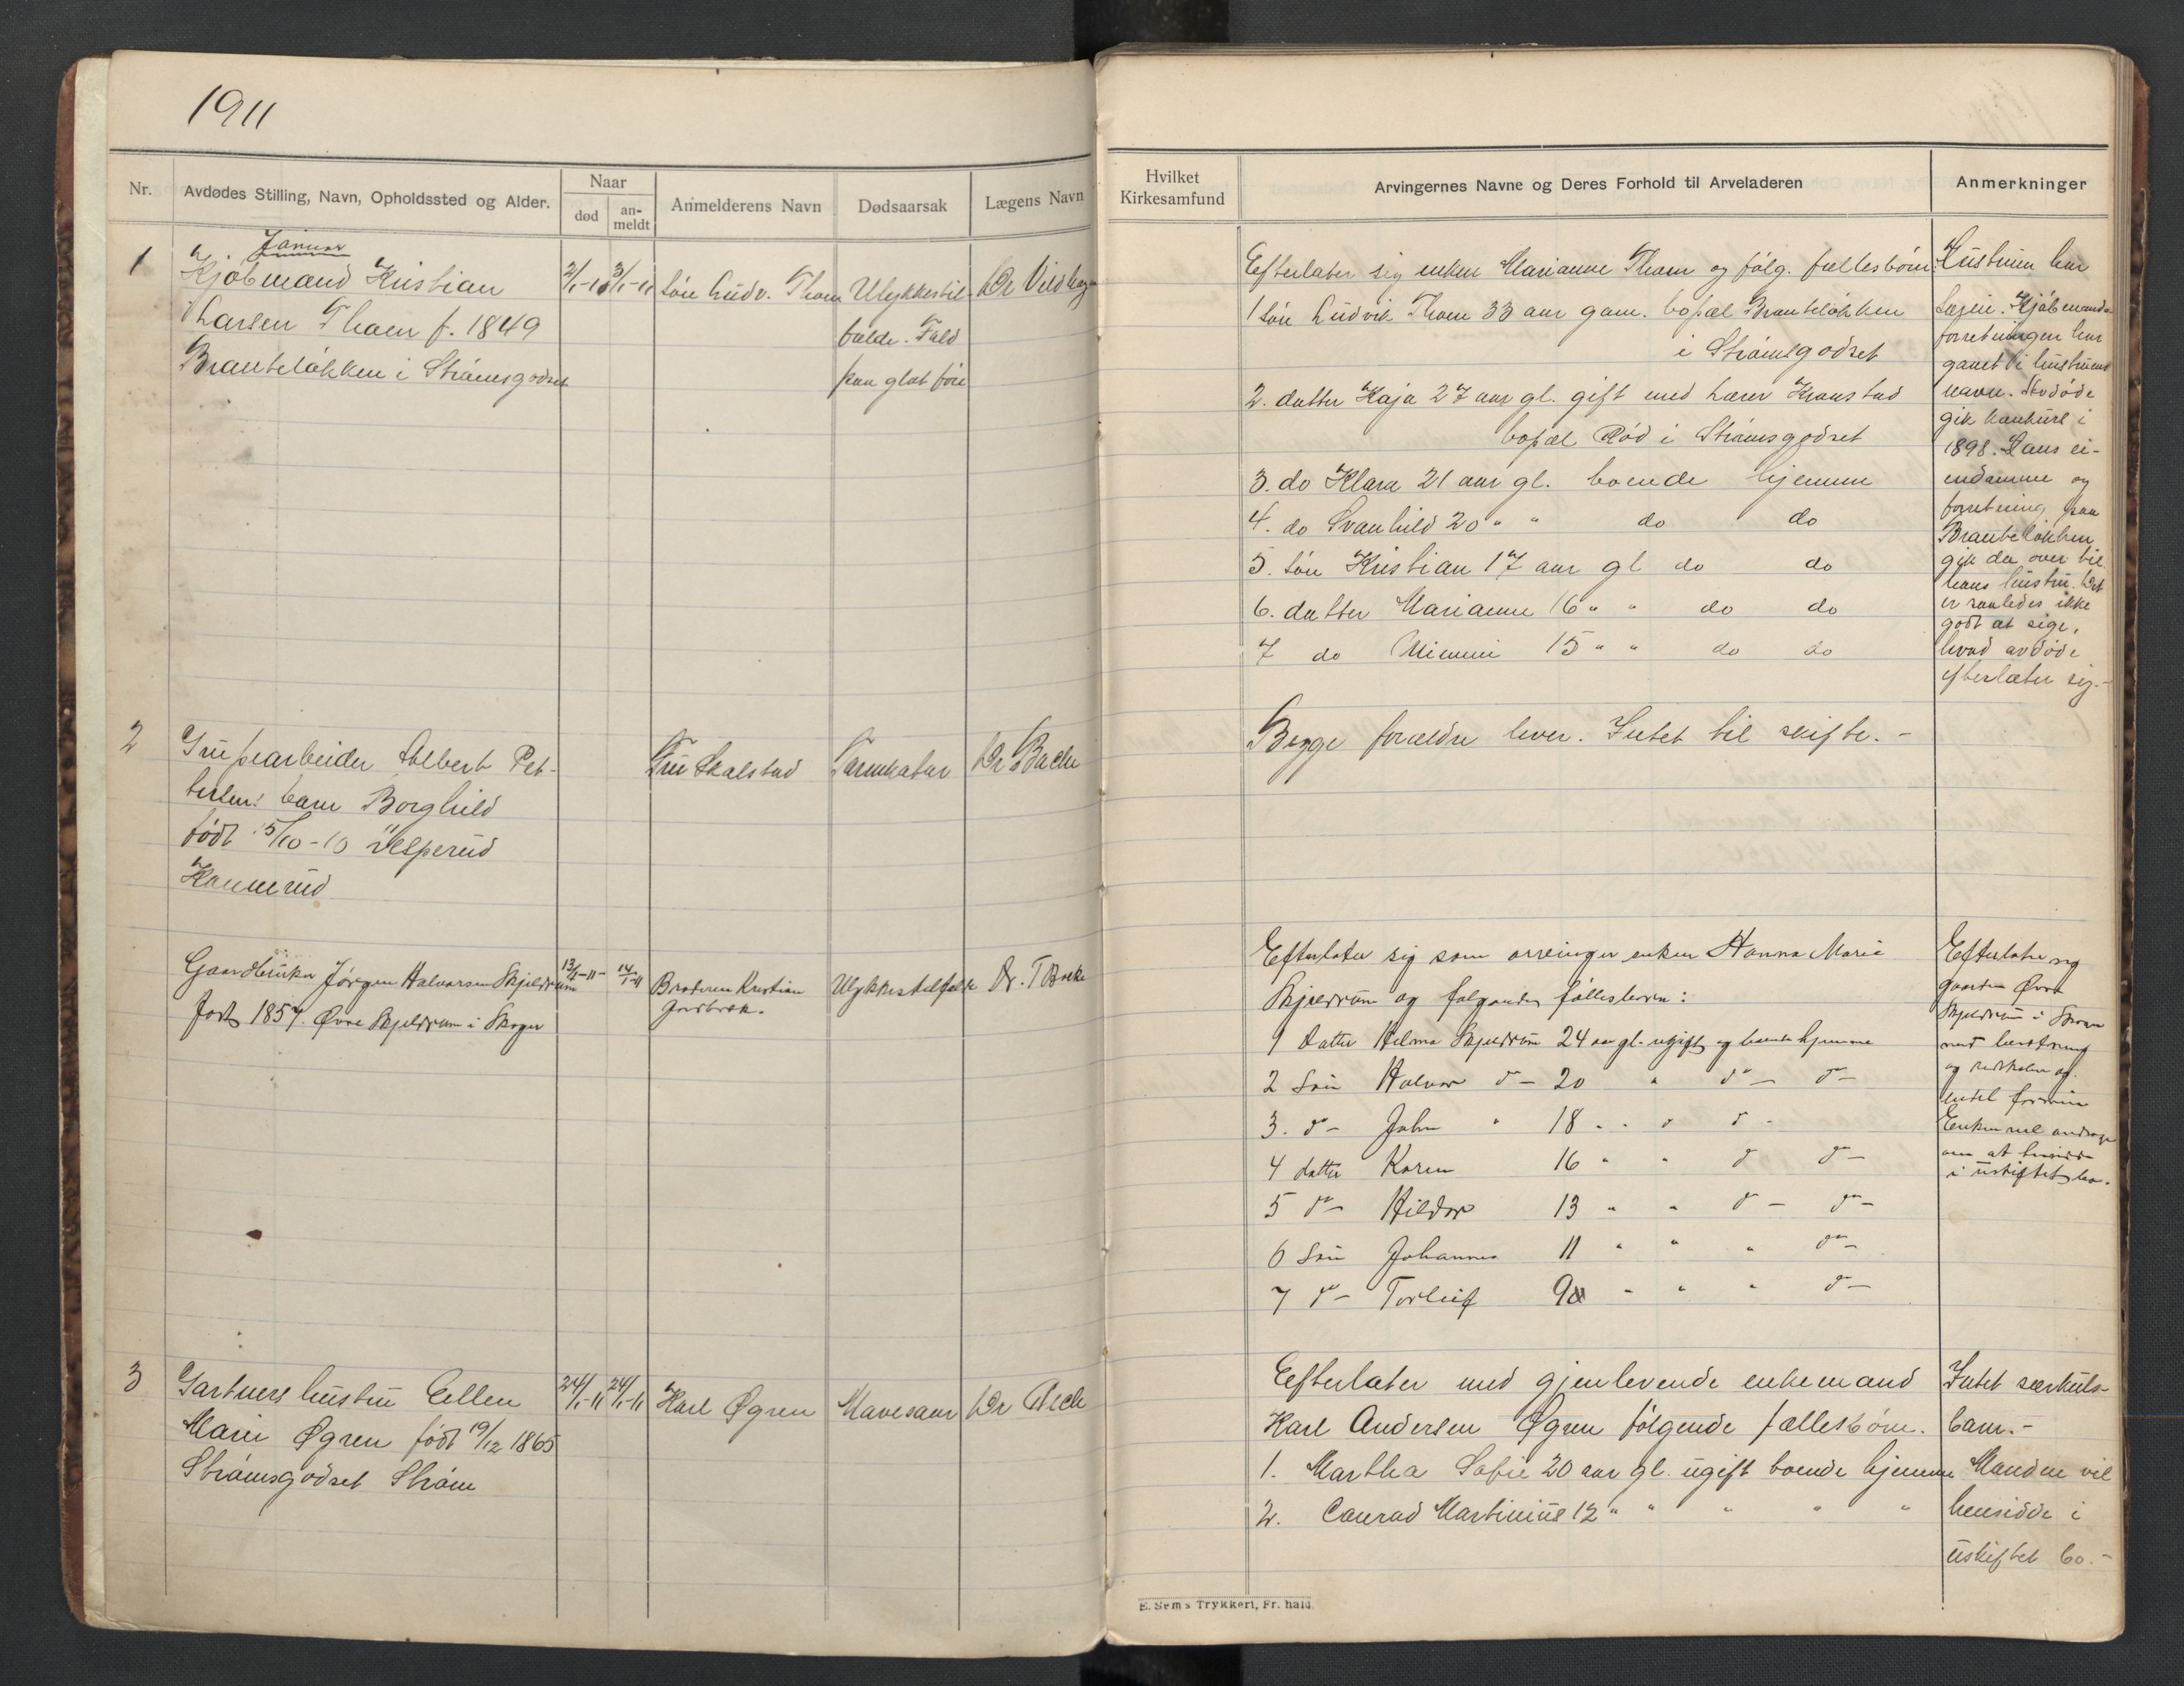 1911
Nr.
Avdødes Stilling, Navn, Opholdssted og Alder.
Naar
død
an-
meldt
Anmelderens Navn
Dødsaarsak
Lægens Navn
Januar
1
Kjøbmand Kristian
Larsen Thoen f. 1849
Branteløkken i Strømsgodset
2/1-11
3/1-11
Søn Ludv. Thoen
Ulykkestil-
fælde. Fald
paa glat føre
Dr
2
Albert Pet-
tersens barn Borghild
født 5/10-10
Fru Skalstad
Tarmkatar
Dr Bache
Gaardbruker Jørgen Halvorsen Skjeldrum
født 1857. Øvre Skjeldrum i Skoger
13/1-11-
14/1-11
Broderen Kristian
Ulykkestilfælde
Dr. T Bache
3
Gartners hustru Ellen
Marie Øgren født 19/12 1865
Strømsgodset Strøm
24/1-11
24/1-11
Karl Øgren
Mavesaar
Dr
Hvilket
Kirkesamfund
Arvingernes Navne og Deres Forhold til Arveladeren
Anmerkninger
Efterlater sig enken Marianne Thoen og følg. fællesbørn:
1 Søn Ludvik Thoen 33 aar gam. bopæl Branteløkken
i Strømsgodset
2. datter Kaja 27 aar gl. gift med lærer
bopæl Rød i Strømsgodset
3. do Klara 21 aar gl. boende hjemme
4. do Svanhild 20 " " do do
5. Søn Kristian 17 aar gl do do
6. datter Marianne 16 " " do do
7 do Mimmi 15 " " do do
Hustruen har
særeie. Kjøbmands-
forretningen har
gaaet i hustruens
navn. Avdøde
gik konkurs i
1898. Hans ei-
endomme og
forretning paa
Branteløkken
gik da over til
hans hustru. Det
er saaledes ikke
godt at sige,
hvad avdøde
efterlater sig.-
Begge forældre lever. Intet til skifte. -
Efterlater sig som arvinger enken Hanna Marie
Skjeldrum og følgende fællesbørn:
1 Datter Helma Skjeldrum 24 aar gl. ugift og boende hjemme
2 Søn Halvor do - 20 " do - do -
3. do - John " 18 " " do do -
4 datter Karen 16 " " do do -
5 do - Hildor 13 " " do - do -
6 Søn Johannes 11 " " " do -
7 do - Torleif 9 " " " do -
Efterlater sig
gaarden Øvre
Skjeldrum i Skoger
med besætning
og redskaber og
endel formue
Enken vil andrage
om at hensidde
i uskiftet bo.
Efterlater med gjenlevende enkemand
Karl Andersen Øgren følgende fællesbørn.
1. Martha Sofie 20 aar gl. ugift boende hjemme
2. Conrad Martinius 12 " " " " "
Intet særkuls-
barn.-
Manden vil
hensidde i
uskiftet bo.-
E. Sems Trykkeri, Fr. hald.